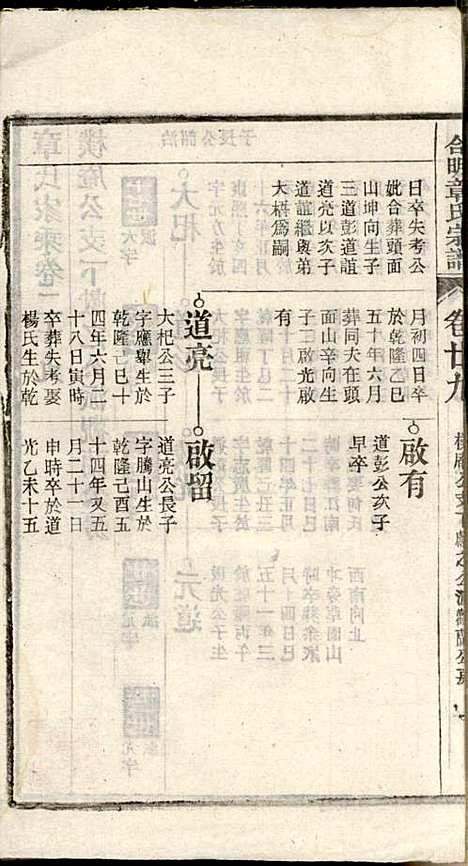 合
章氏宗譜
卷廿九
日卒失考公
妣合葬頭面
山坤向生子
三道彭道誼
道亮以亥子
道誼繼與弟
大梧爲嗣
月初四日卒
於乾隆乙巳
五十年六月
葬同夫在頭
面山辛向生
子二啟光啟
有
啟有
道彭公亥子
早卒
道亮
大杞公三子
字應舉生於
乾隆己巳十
四年六月二
十八日寅時
卒葬失考娶
楊氏生於乾
啟留
道亮公長子
字騰山生於
乾隆己酉五
十四年又五
月二十一日
申時卒於道
光乙未十五